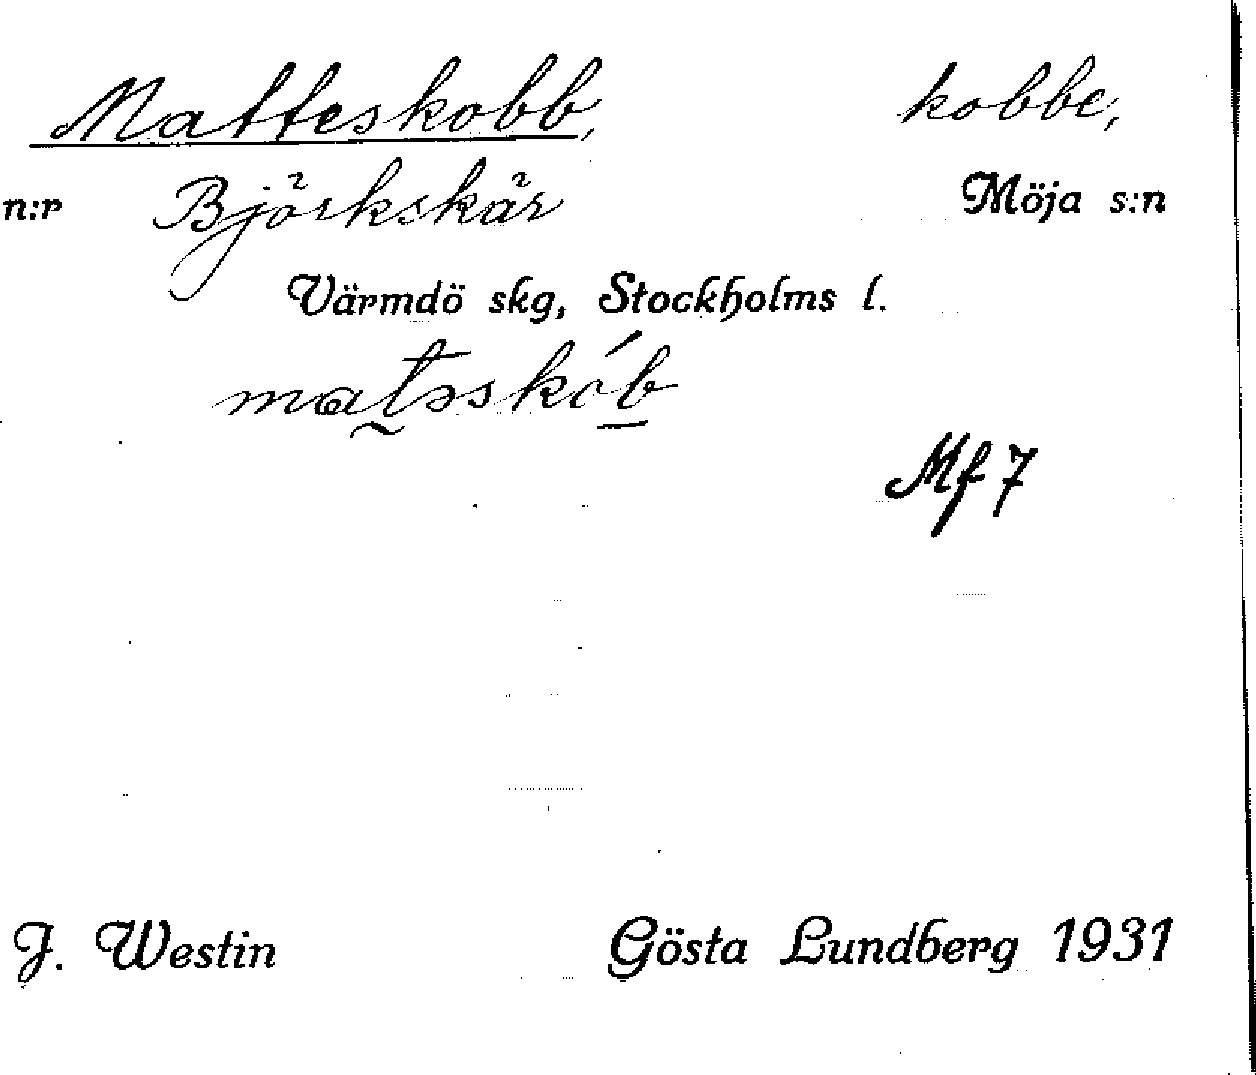 Matteskobb, kobbe,
n:r Björkskär Möja s:n
Värmdö skg, Stockholms l.
Mf 7
J. Westin Gösta Lundberg 1931